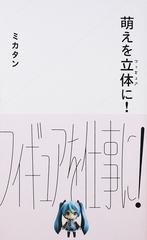 萌えを立体に!
フィギュア
ミカタン
フィギュアを仕事に!